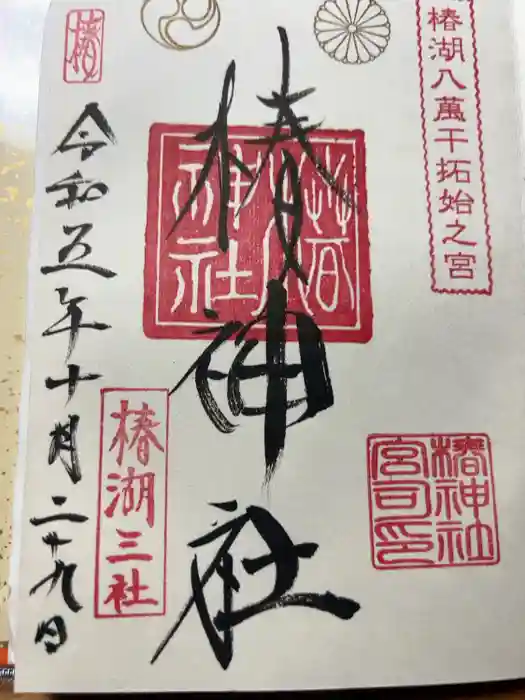 椿湖八萬干拓始之宮
椿神社
椿神社
椿神社宮司印
椿湖三社
椿
令和五年十月二十九日